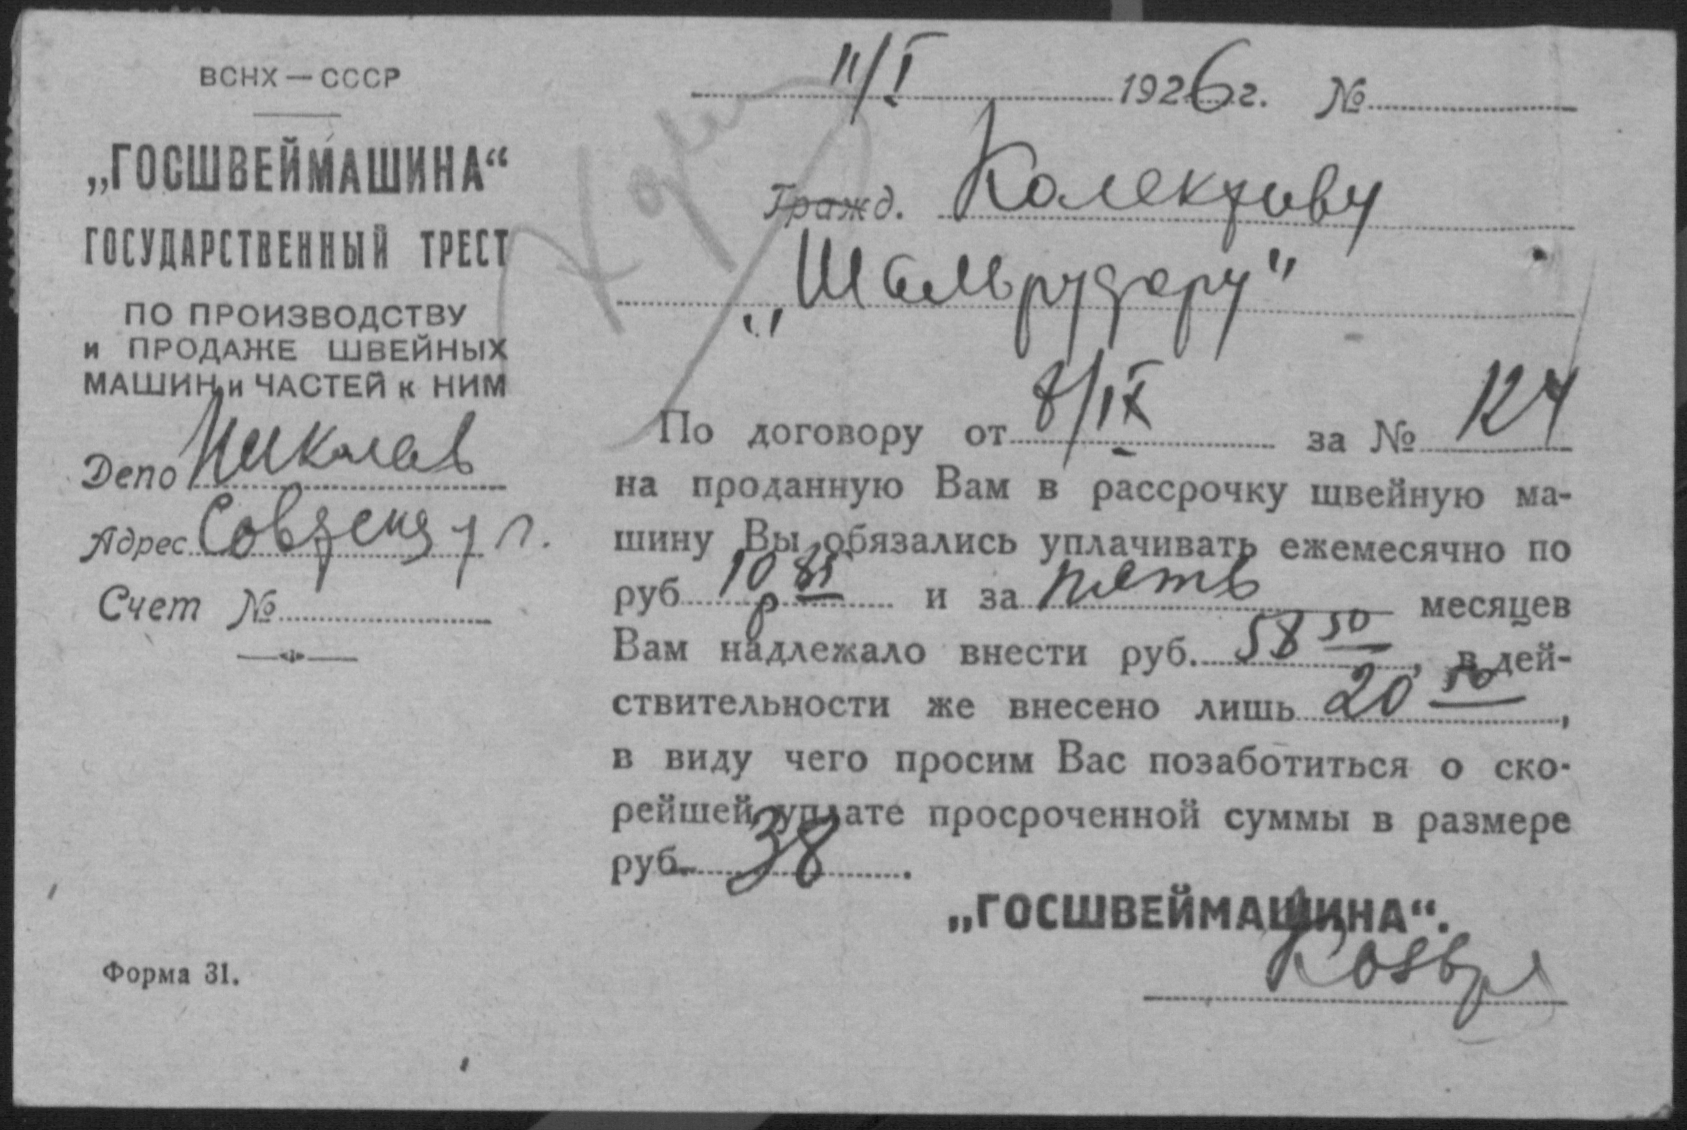 ВСНХ — СССР
„ГОСШВЕЙМАШИНА“
ГОСУДАРСТВЕННЫЙ ТРЕСТ
ПО ПРОИЗВОДСТВУ
и ПРОДАЖЕ ШВЕЙНЫХ
МАШИН и ЧАСТЕЙ к НИМ
Депо Николаев
Адрес
Счет №
Форма 31.
11/I 1926 г. №
Гражд. Колективу
По договору от 8/IX за № 124
на проданную Вам в рассрочку швейную ма-
шину Вы обязались уплачивать ежемесячно по
руб. 10 р 85 и за пять месяцев
Вам надлежало внести руб. 58 50, в дей-
ствительности же внесено лишь 20 50,
в виду чего просим Вас позаботиться о ско-
рейшей уплате просроченной суммы в размере
руб. 38.
„ГОСШВЕЙМАШИНА“.